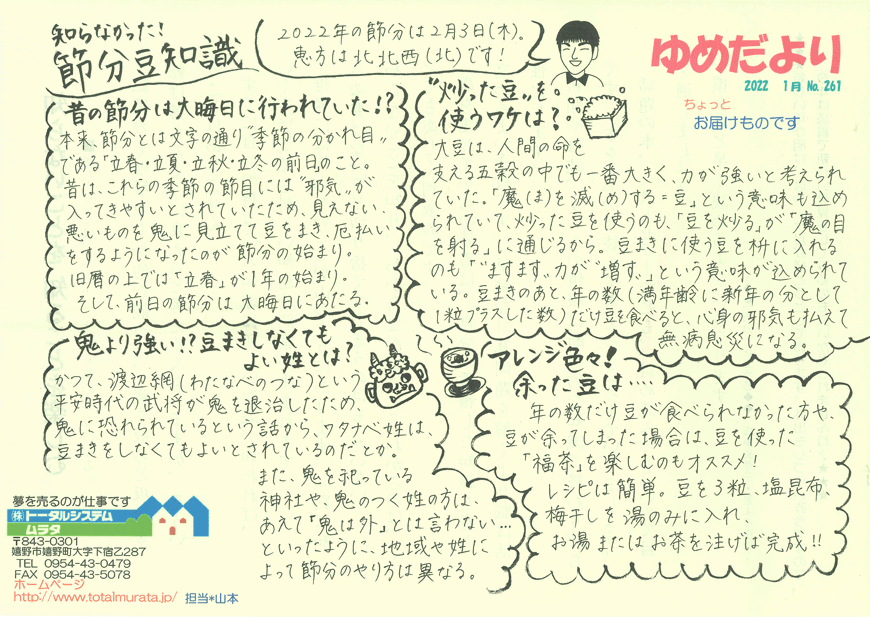 知らなかった!
節分豆知識
2022年の節分は2月3日(木)。
恵方は北北西(北)です!
ゆめだより
2022 1月 No.261
ちょっと
お届けものです
昔の節分は大晦日に行われていた!?
本来、節分とは文字の通り“季節の分かれ目”
である「立春・立夏・立秋・立冬の前日のこと。
昔は、これらの季節の節目には“邪気”が
入ってきやすいとされていたため、見えない、
悪いものを鬼に見立てて豆をまき、厄払い
をするようになったのが節分の始まり。
旧暦の上では「立春」が1年の始まり。
そして、前日の節分は大晦日にあたる。
“炒った豆”を
使うワケは?
大豆は、人間の命を
支える五穀の中でも一番大きく、力が強いと考えられ
ていた。「魔(ま)を滅(め)する=豆」という意味も込め
られていて、炒った豆を使うのも、「豆を炒る」が「魔の目
を射る」に通じるから。豆まきに使う豆を枡に入れる
のも「“ますます、力が“増す、」という意味が込められて
いる。豆まきのあと、年の数(満年齢に新年の分として
1粒プラスした数)だけ豆を食べると、心身の邪気も払えて
無病息災になる。
鬼より強い!?豆まきしなくても
よい姓とは?
かつて、渡辺綱(わたなべのつな)という
平安時代の武将が鬼を退治したため、
鬼に恐れられているという話から、ワタナベ姓は、
豆まきをしなくてもよいとされているのだとか。
また、鬼を祀っている
神社や、鬼のつく姓の方は、
あえて「鬼は外」とは言わない…
といったように、地域や姓に
よって節分のやり方は異なる。
アレンジ色々!
余った豆は‥‥
年の数だけ豆が食べられなかった方や、
豆が余ってしまった場合は、豆を使った
「福茶」を楽しむのもオススメ!
レシピは簡単。豆を3粒、塩昆布、
梅干しを湯のみに入れ、
お湯またはお茶を注げば完成!!
夢を売るのが仕事です
㈱トータルシステム
ムラタ
〒843-0301
嬉野市嬉野町大字下宿乙287
TEL 0954-43-0479
FAX 0954-43-5078
ホームページ
http://www.totalmurata.jp/ 担当*山本